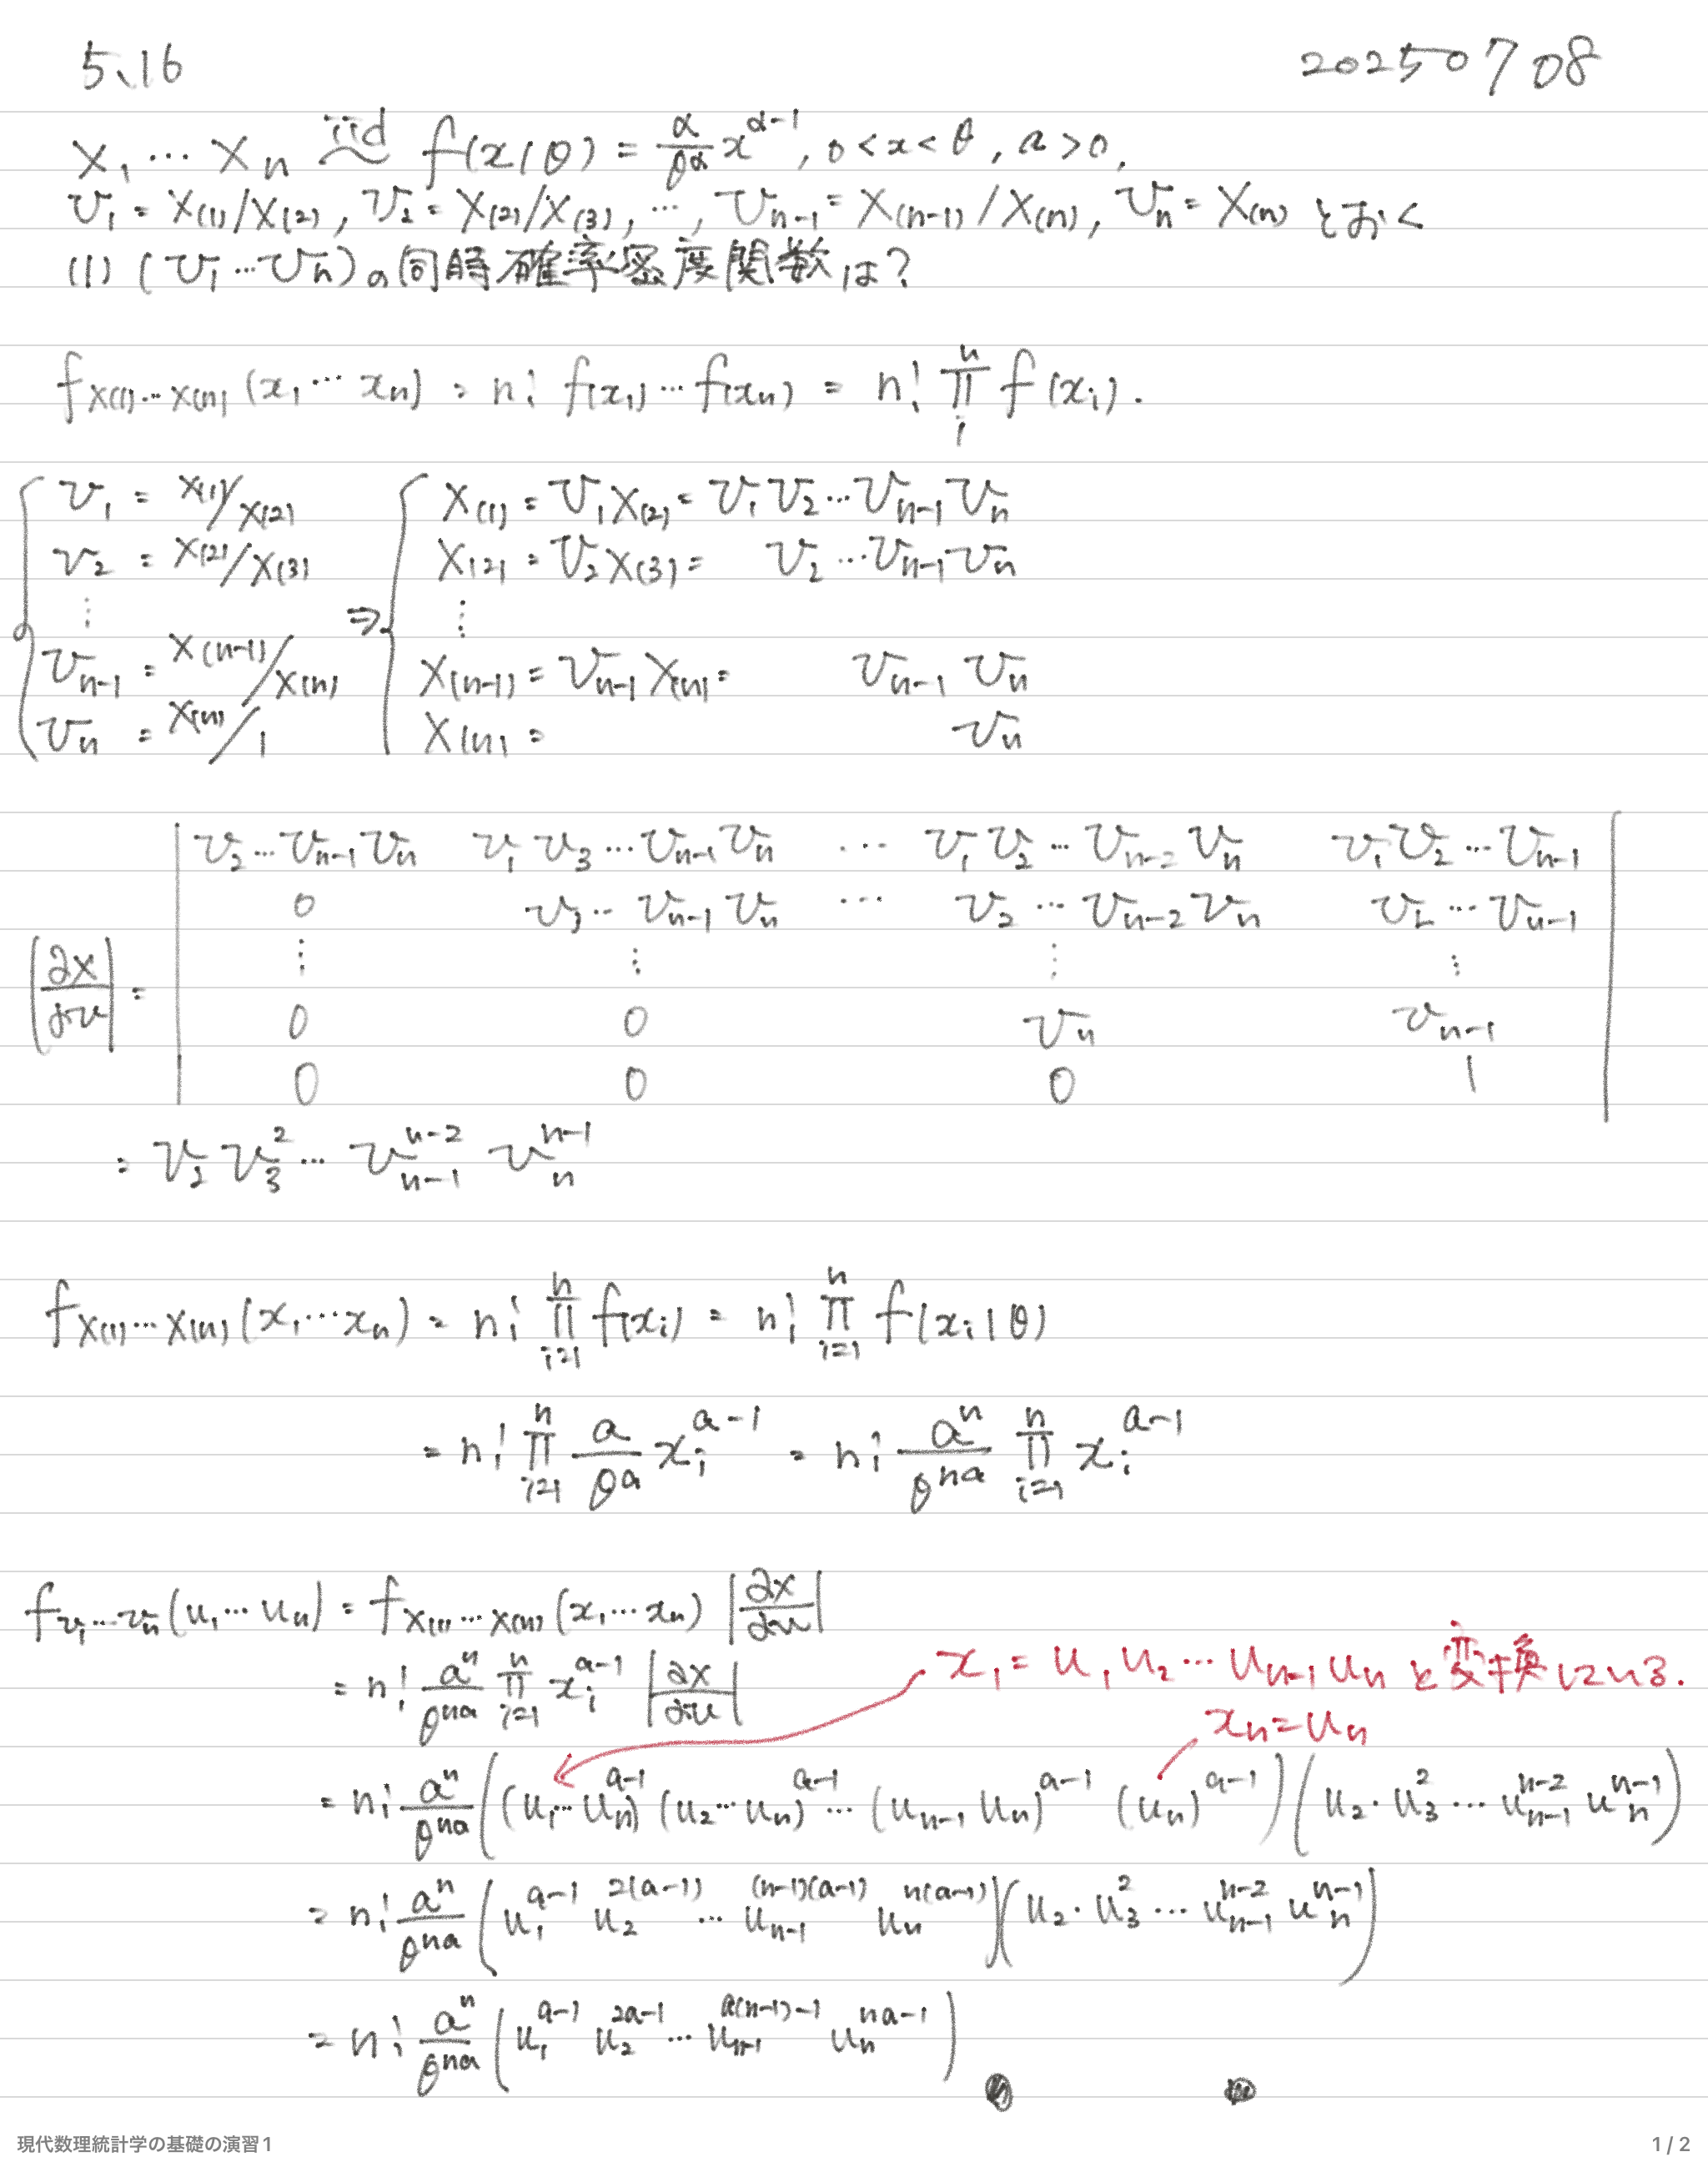 5.16 20250708
X₁…Xₙ iid~ f(x|θ) = α/θ^α x^{α-1}, 0<x<θ, a>0,
V₁ = X(1)/X(2), V₂ = X(2)/X(3), …, V_{n-1} = X(n-1)/X(n), Vₙ = X(n) とおく
(1) (V₁…Vₙ)の同時確率密度関数は?
f_{X(1)…X(n)}(x₁…xₙ) = n! f(x₁)…f(xₙ) = n! ∏_i^n f(xᵢ).
V₁ = X(1)/X(2)
V₂ = X(2)/X(3)
⋮
V_{n-1} = X(n-1)/X(n)
Vₙ = X(n)/1
⇒
X(1) = V₁X(2) = V₁V₂…V_{n-1}Vₙ
X(2) = V₂X(3) = V₂…V_{n-1}Vₙ
⋮
X(n-1) = V_{n-1}X(n) = V_{n-1}Vₙ
X(n) = Vₙ
V₂…V_{n-1}Vₙ V₁V₃…V_{n-1}Vₙ … V₁V₂…V_{n-2}Vₙ V₁V₂…V_{n-1}
0 V₃…V_{n-1}Vₙ … V₂…V_{n-2}Vₙ V₂…V_{n-1}
|∂x/∂v| = ⋮ ⋮ ⋮ ⋮
0 0 Vₙ V_{n-1}
0 0 0 1
= V₂V₃²…V_{n-1}^{n-2} Vₙ^{n-1}
f_{X(1)…X(n)}(x₁…xₙ) = n! ∏_{i=1}^n f(xᵢ) = n! ∏_{i=1}^n f(xᵢ|θ)
= n! ∏_{i=1}^n a/θ^a xᵢ^{a-1} = n! a^n/θ^{na} ∏_{i=1}^n xᵢ^{a-1}
f_{V₁…Vₙ}(u₁…uₙ) = f_{X(1)…X(n)}(x₁…xₙ) |∂x/∂u|
= n! a^n/θ^{na} ∏_{i=1}^n xᵢ^{a-1} |∂x/∂u|
x₁ = u₁u₂…u_{n-1}uₙ と変換している.
xₙ = uₙ
= n! a^n/θ^{na} ((u₁…uₙ)^{a-1} (u₂…uₙ)^{a-1} … (u_{n-1}uₙ)^{a-1} (uₙ)^{a-1}) (u₂・u₃²…u_{n-1}^{n-2} uₙ^{n-1})
= n! a^n/θ^{na} (u₁^{a-1} u₂^{2(a-1)} … u_{n-1}^{(n-1)(a-1)} uₙ^{n(a-1)}) (u₂・u₃²…u_{n-1}^{n-2} uₙ^{n-1})
= n! a^n/θ^{na} (u₁^{a-1} u₂^{2a-1} … u_{n-1}^{a(n-1)-1} uₙ^{na-1})
現代数理統計学の基礎の演習1 1 / 2